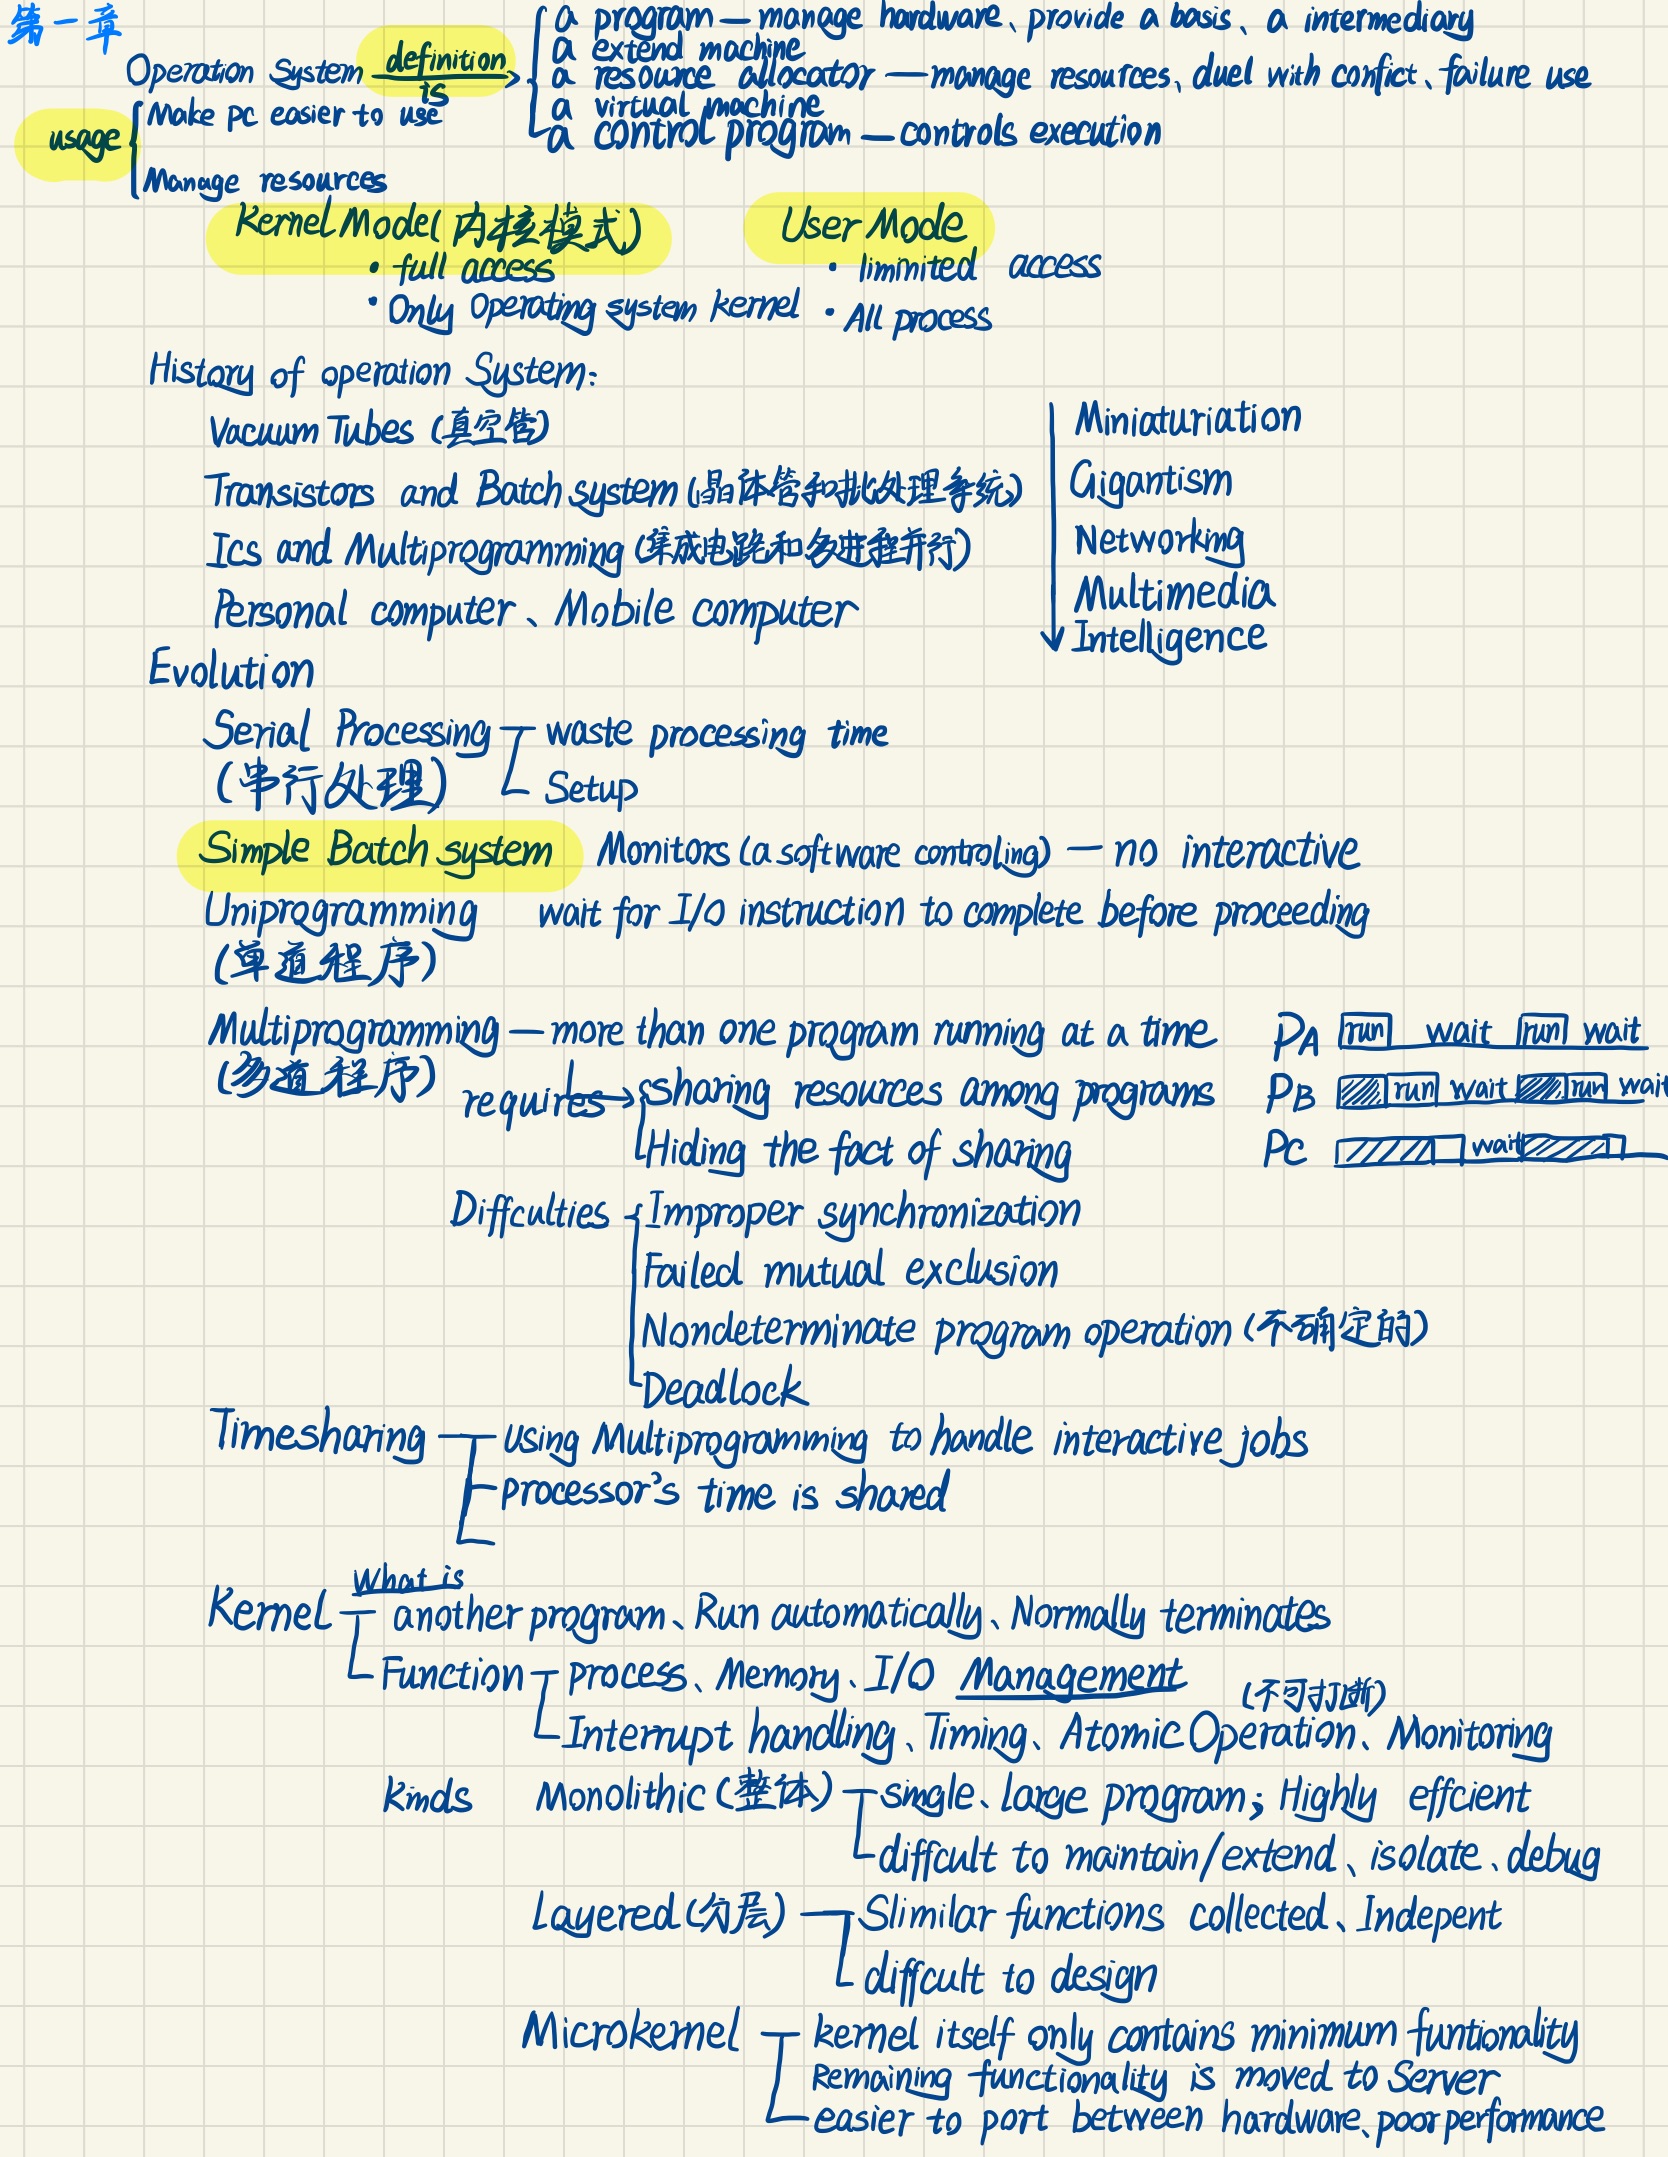 第一章
Operation System definition is
a program — manage hardware、provide a basis、a intermediary
a extend machine
a resource allocator — manage resources、duel with confict、failure use
a virtual machine
a control program — controls execution
usage
Make pc easier to use
Manage resources
Kernel Mode(内核模式)
• full access
• Only Operating system kernel
User Mode
• liminited access
• All process
History of operation System:
Vacuum Tubes (真空管)
Transistors and Batch system (晶体管和批处理系统)
Ics and Multiprogramming (集成电路和多进程并行)
Personal computer、Mobile computer
Miniaturiation
Gigantism
Networking
Multimedia
Intelligence
Evolution
Serial Processing
(串行处理)
waste processing time
Setup
Simple Batch system Monitors (a software controling) — no interactive
Uniprogramming wait for I/O instruction to complete before proceeding
(单道程序)
Multiprogramming — more than one program running at a time
(多道程序)
requires
sharing resources among programs
Hiding the fact of sharing
PA run wait run wait
PB run wait run wait
PC wait
Diffculties
Improper synchronization
Failed mutual exclusion
Nondeterminate program operation (不确定的)
Deadlock
Timesharing
using Multiprogramming to handle interactive jobs
processor's time is shared
Kernel What is
another program、Run automatically、Normally terminates
Function process、Memory、I/O Management
(不可打断)
Interrupt handling、Timing、Atomic Operation、Monitoring
kinds Monolithic (整体) single、Large program; Highly effcient
diffcult to maintain/extend、isolate、debug
Layered (分层) Slimilar functions collected、Indepent
diffcult to design
Microkernel kernel itself only contains minimum funtionality
Remaining functionality is moved to Server
easier to port between hardware、poor performance